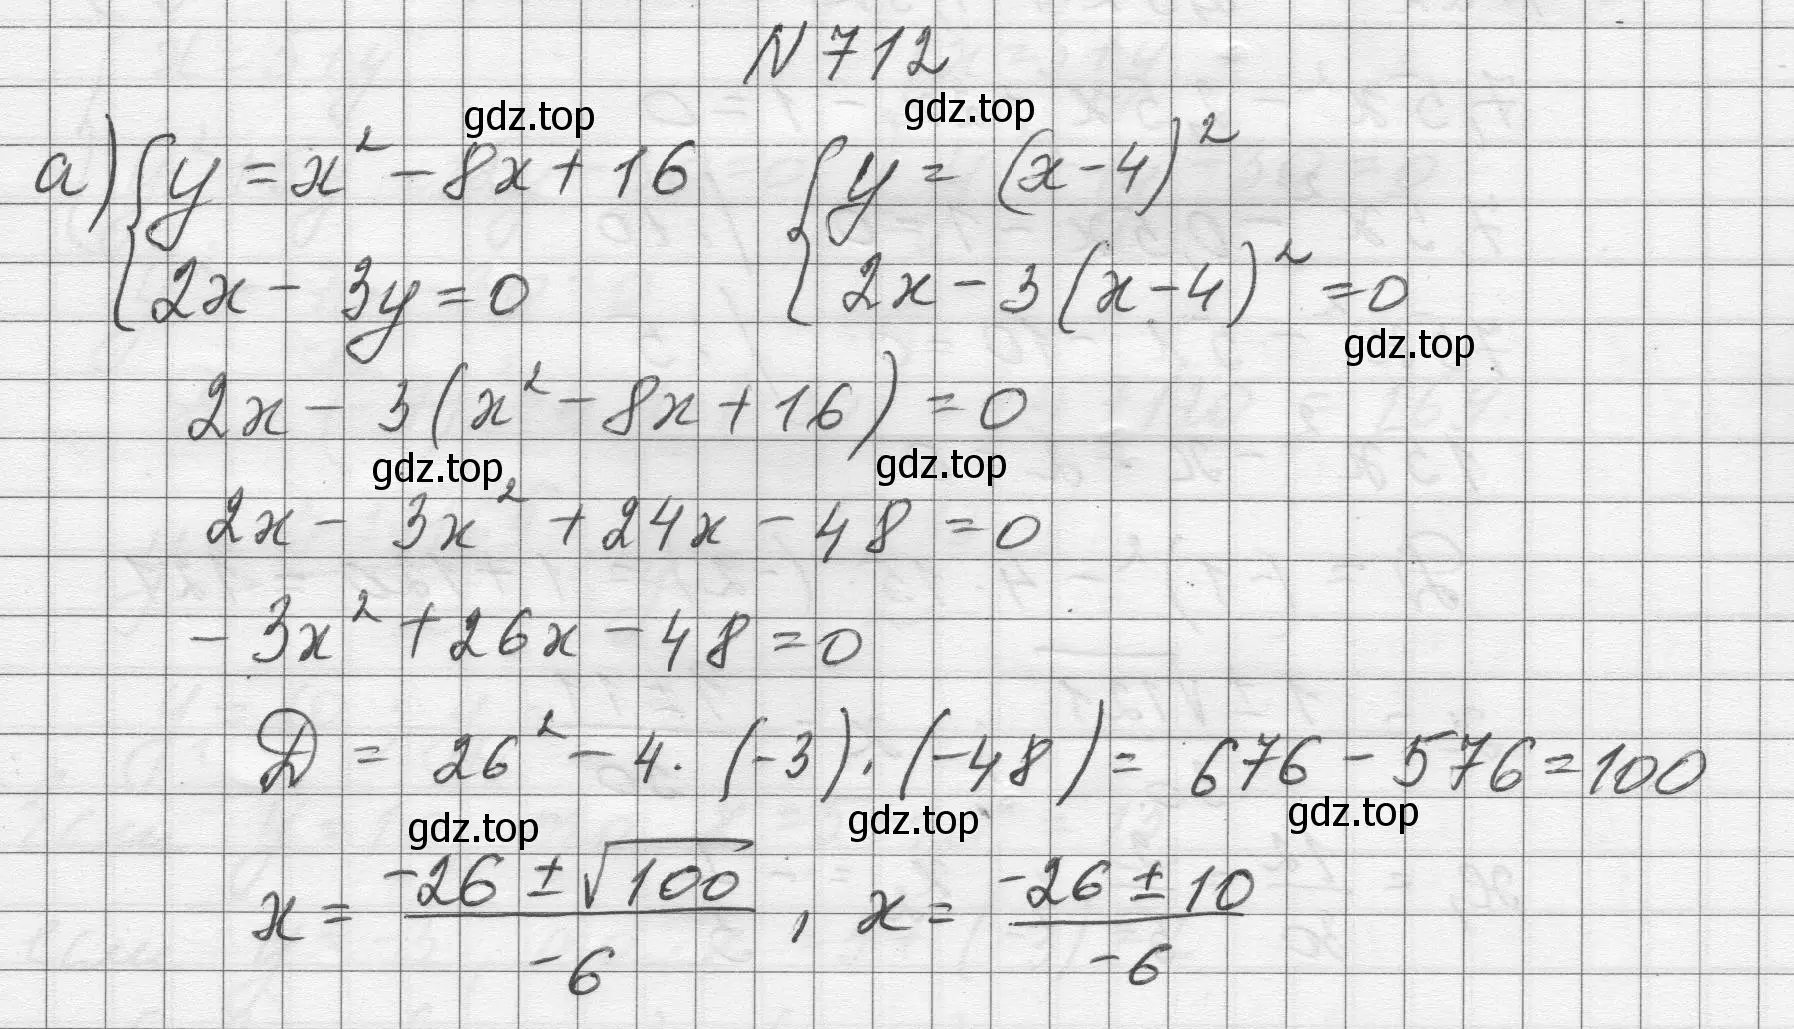 N 712
gdz.top gdz.top
а) { y = x² - 8x + 16 { y = (x - 4)²
2x - 3y = 0 2x - 3(x - 4)² = 0
gdz.top
2x - 3(x² - 8x + 16) = 0
gdz.top gdz.top
2x - 3x² + 24x - 48 = 0
- 3x² + 26x - 48 = 0
D = 26² - 4 · (-3) · (-48) = 676 - 576 = 100
gdz.top gdz.top gdz.top
x = (-26 ± √100) / -6 , x = (-26 ± 10) / -6